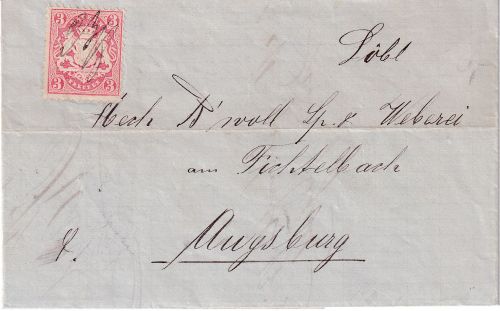 3 3
3 3
Löbl
Mech B'woll Sp. & Weberei
am Fichtelbach
Augsburg